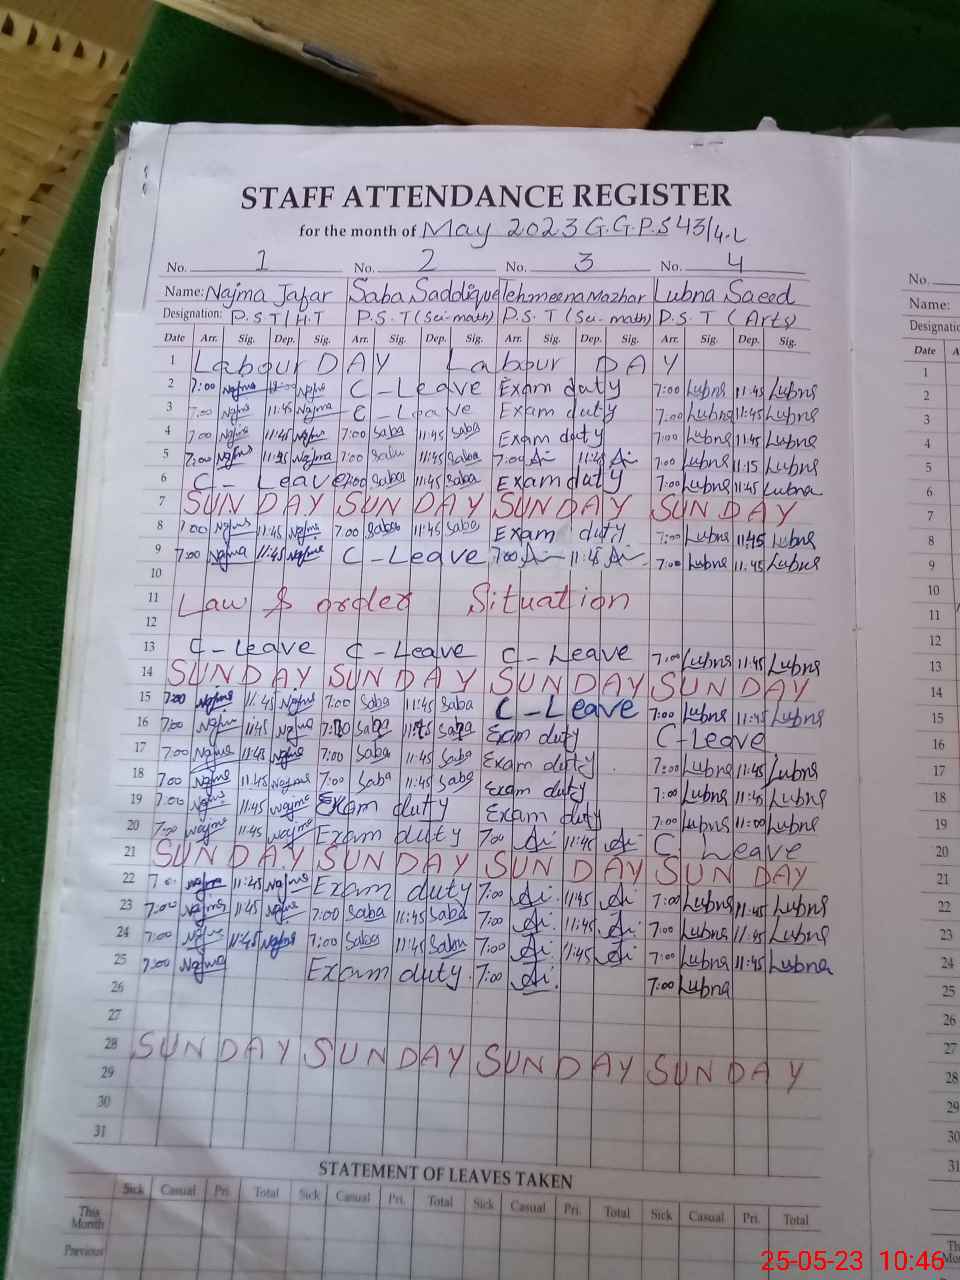 STAFF ATTENDANCE REGISTER
for the month of May 2023 G.G.P.S 43/4-L
No. 1 No. 2 No. 3 No. 4 No.
Name: Najma Jafar Saba Saddique Tehmeena Mazhar Lubna Saeed Name:
Designation: P.S.T/H.T P.S.T (Sci-math) P.S.T (Sci-math) P.S.T (Arts)
Date Arr. Sig. Dep. Sig. Arr. Sig. Dep. Sig. Arr. Sig. Dep. Sig. Arr. Sig. Dep. Sig. Date
1 Labour DAY Labour DAY 1
2 7:00 Najma Najma C-Leave Exam duty 7:00 Lubna 11:45 Lubna 2
3 7:00 Najma 11:45 Najma C-Leave Exam duty 7:00 Lubna 11:45 Lubna 3
4 7:00 Najma 11:45 Najma 7:00 Saba 11:45 Saba Exam duty 7:00 Lubna 11:45 Lubna 4
5 7:00 Najma 11:45 Najma 7:00 Saba 11:45 Saba 7:00 11:45 7:00 Lubna 11:15 Lubna 5
6 C-Leave 7:00 Saba 11:45 Saba Exam duty 7:00 Lubna 11:45 Lubna 6
7 SUNDAY SUNDAY SUNDAY SUNDAY 7
8 7:00 Najma 11:45 Najma 7:00 Saba 11:45 Saba Exam duty 7:00 Lubna 11:45 Lubna 8
9 7:00 Najma 11:45 Najma C-Leave 7:00 11:45 7:00 Lubna 11:45 Lubna 9
10 10
11 Law & order Situation 11
12 12
13 C-Leave C-Leave C-Leave 7:00 Lubna 11:45 Lubna 13
14 SUNDAY SUNDAY SUNDAY SUNDAY 14
15 7:00 Najma 11:45 Najma 7:00 Saba 11:45 Saba C-Leave 7:00 Lubna 11:45 Lubna 15
16 7:00 Najma 11:45 Najma 7:00 Saba 11:45 Saba Exam duty C-Leave 16
17 7:00 Najma 11:45 Najma 7:00 Saba 11:45 Saba Exam duty 7:00 Lubna 11:45 Lubna 17
18 7:00 Najma 11:45 Najma 7:00 Saba 11:45 Saba Exam duty 7:00 Lubna 11:45 Lubna 18
19 7:00 Najma 11:45 Najma Exam duty Exam duty 7:00 Lubna 11:00 Lubna 19
20 7:00 Najma 11:45 Najma Exam duty 7:00 11:45 C Leave 20
21 SUNDAY SUNDAY SUNDAY SUNDAY 21
22 Najma 11:45 Najma Exam duty 7:00 11:45 7:00 Lubna 11:45 Lubna 22
23 7:00 Najma 11:45 Najma 7:00 Saba 11:45 Saba 7:00 11:45 7:00 Lubna 11:45 Lubna 23
24 7:00 Najma 11:45 Najma 7:00 Saba 11:45 Saba 7:00 11:45 7:00 Lubna 11:45 Lubna 24
25 7:00 Najma Exam duty 7:00 7:00 Lubna 25
26 26
27 27
28 SUNDAY SUNDAY SUNDAY SUNDAY 28
29 29
30 30
31 31
STATEMENT OF LEAVES TAKEN
Sick Casual Pri. Total Sick Casual Pri. Total Sick Casual Pri. Total Sick Casual Pri. Total
This Month
Previous
25-05-23 10:46